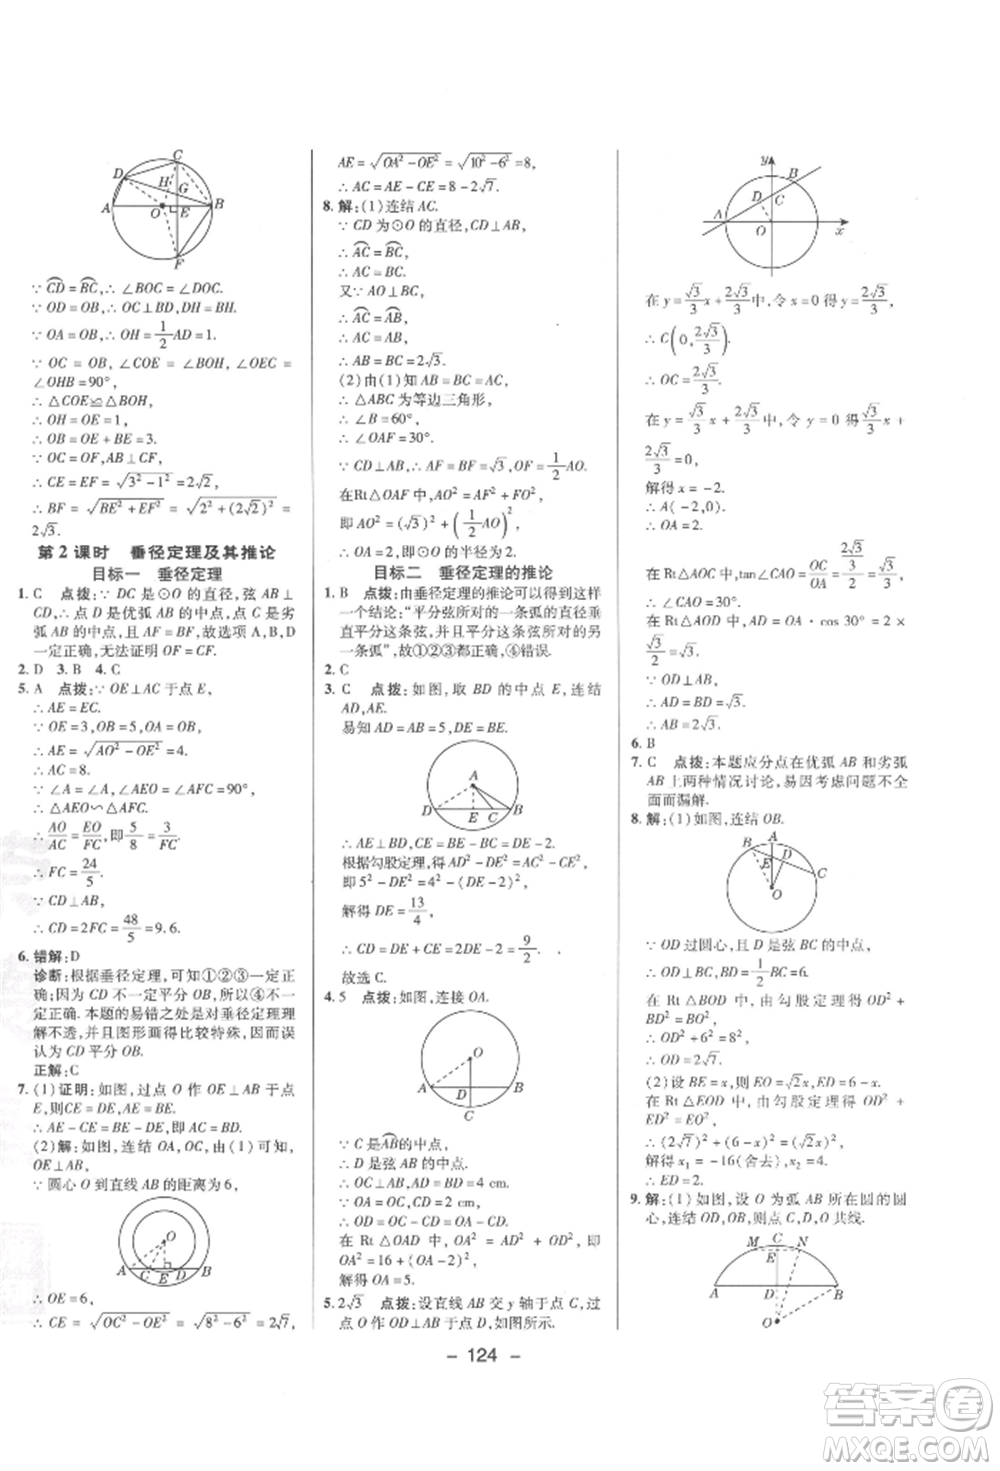 C
D
H
G
A
O
E
B
F
∵ C͡D=B͡C,∴ ∠BOC=∠DOC.
∵ OD=OB,∴ OC⊥BD,DH=BH.
∵ OA=OB,∴ OH=1/2AD=1.
∵ OC = OB, ∠COE = ∠BOH, ∠OEC =
∠OHB=90°,
∴ △COE≌△BOH,
∴ OH=OE=1,
∴ OB=OE+BE=3.
∵ OC=OF,AB⊥CF,
∴ CE=EF=√(3²-1²)=2√2,
∴ BF = √(BE²+EF²) = √(2²+(2√2)²) =
2√3.
第2课时 垂径定理及其推论
目标一 垂径定理
1. C 点拨:∵ DC 是⊙O 的直径,弦 AB⊥
CD,∴ 点 D 是优弧 AB 的中点,点 C 是劣
弧 AB 的中点,DC 平分 AB,故选项 A,B,D
一定正确,无法证明 OC=CB.
2. D 3. B 4. C
5. A 点拨:∵ OE⊥AC 于点 E,
∴ AE=EC.
∵ OE=3,OB=5,OA=OB,
∴ AE=√(AO²-OE²)=4.
∴ AC=8.
∵ ∠A=∠A,∠AEO=∠AFC=90°,
∴ △AEO∽△AFC,
∴ AO/AC=EO/FC,即5/8=3/FC.
∴ FC=24/5.
∵ CD⊥AB,
∴ CD=2FC=48/5=9.6.
6. 错解:D
诊断:根据垂径定理,可知①②③一定正
确,因为 CD 不一定平分 OB,所以④不一
定正确.本题的易错之处是对垂径定理理
解不透,并且图形画得比较特殊,因而误
认为 CD 平分 OB.
正解:C
7. (1)证明:如图,过点 O 作 OE⊥AB 于点
E,则 CE=DE,AE=BE,
∴ AE-CE=BE-DE,即 AC=BD.
(2)解:如图,连结 OA,OC,由(1)可知,
OE⊥AB.
∵ 圆心 O 到直线 AB 的距离为 6,
O
A
C E D
B
∴ OE=6,
∴ CE =√(OC²-OE²)=√(8²-6²)=2√7,
AE=√(OA²-OE²)=√(10²-6²)=8,
∴ AC=AE-CE=8-2√7.
8. 解:(1)连结 AC.
∵ CD 为⊙O 的直径,CD⊥AB,
∴ A͡C=B͡C,
∴ AC=BC.
又∵ AO⊥BC,
∴ A͡C=A͡B,
∴ AC=AB,
∴ AB=BC=2√3.
(2)由(1)知 AB=BC=AC,
∴ △ABC 为等边三角形,
∴ ∠B=60°,
∴ ∠OAF=30°.
∵ CD⊥AB,∴ AF=√3,OF=1/2AO.
在Rt△OAF 中,AO²=AF²+FO²,
即 AO²=(√3)²+(1/2AO)²,
∴ AO=2,即⊙O 的半径为 2.
目标二 垂径定理的推论
1. B 点拨:由垂径定理的推论可以得到这
样一个结论:“平分弦所对的一条弧的直径垂
直平分这条弦,并且平分弦所对的另
一条弧”,故①②③正确,④错误.
2. C
3. C 点拨:如图,取 BD 的中点 E,连结
AD,AE.
易知 AD=AB=5,DE=BE.
A
D
E C
B
∴ AE⊥BD,CE=BC-BE=BC-DE,
根据勾股定理,得 AD²-DE²=AC²-CE²,
即5²-DE²=4²-(DE-2)²,
解得 DE=13/4,
∴ CD=DE+CE=2DE-2=9/2.
故选 C.
4. 5 点拨:如图,连接 OA.
O
A
D
B
C
∵ C 是A͡B的中点,
∴ D 是弦 AB 的中点.
∴ OC⊥AB,AD=BD=4 cm.
∵ OA=OC,CD=2 cm,
∴ OD=OC-CD=OA-2.
在 Rt△OAD 中,OA²=AD²+OD²,即
OA²=16+(OA-2)²,
解得 OA=5.
5. 2√3 点拨:设直线 AB 交 y 轴于点 C,过
点 O 作 OD⊥AB 于点 D,如图所示.
y
B
D
C
A
O
x
在 y=√3/3x+2√3/3中,令 x=0 得 y=2√3/3,
∴ C(0,2√3/3),
∴ OC=2√3/3.
在 y=√3/3x+2√3/3中,令 y=0 得√3/3x+
2√3/3=0,
解得 x=-2.
∴ A(-2,0).
∴ OA=2.
在 Rt△AOC 中,tan∠CAO=OC/OA=(2√3/3)/2=
√3/3,∴ ∠CAO=30°.
在 Rt△AOD 中,AD=OA·cos 30°=2×
√3/2=√3.
∵ OD⊥AB,
∴ AD=BD=√3,
∴ AB=2√3.
6. B
7. C 点拨:本题应分点在优弧 AB 和劣弧
AB 上两种情况讨论,易因考虑问题不全
面而漏解.
8. 解:(1)如图,连结 OB.
B
E
D
C
O
∵ OD 过圆心,且 D 是弦 BC 的中点,
∴ OD⊥BC,BD=1/2BC=6.
在 Rt△BOD 中,由勾股定理得 OD²+
BD²=BO²,
∴ OD²+6²=8²,
∴ OD=2√7.
(2)设 BE=x,则 EO=√2x,DE=6-x,
在 Rt△EOD 中,由勾股定理得 OD²+
ED²=EO²,
∴ (2√7)²+(6-x)²=(√2x)²,
解得 x₁=-16(舍去),x₂=4,
∴ ED=2.
9. 解:(1)如图,设 O 为弧 AB 所在圆的圆
心,连结 OD,OB,则点 C,D,O 共线.
M C N
E
A
D
B
O
- 124 -
答案圈
MXQE.COM